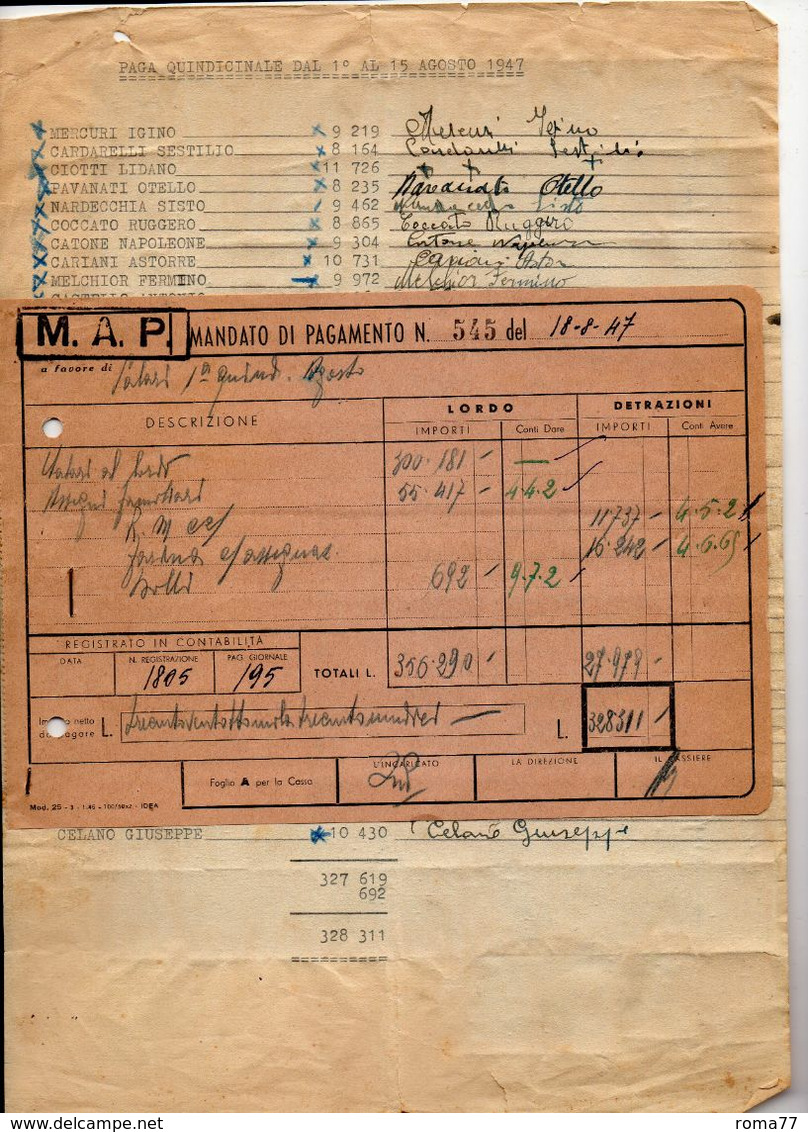 PAGA QUINDICINALE DAL 1° AL 15 AGOSTO 1947
MERCURI IGINO x 9 219 Mercuri Igino
CARDARELLI SESTILIO x 8 164 Cardarelli Sestilio
CIOTTI LIDANO x 11 726 + + +
PAVANATI OTELLO x 8 235 Pavanato Otello
NARDECCHIA SISTO 9 462 Sisto
COCCATO RUGGERO 8 865 Coccato Ruggero
CATONE NAPOLEONE x 9 304 Catone
CARIANI ASTORRE x 10 731 Cariani Astor
MELCHIOR FERMINO 9 972 Melchior Fermino
M. A. P. MANDATO DI PAGAMENTO N. 545 del 18-8-47
a favore di Salari 1ª quind. Agosto
DESCRIZIONE LORDO DETRAZIONI
IMPORTI Conti Dare IMPORTI Conti Avere
Salari al lordo 300.181 —
Assegni famigliari 55.417 4.4.2
R. M. 11.737 4.5.2
16.242 4.6.65
Bolli 692 9.7.2
REGISTRATO IN CONTABILITÀ
DATA N. REGISTRAZIONE PAG GIORNALE
1805 195
TOTALI L. 356.290 27.979
Importo netto da pagare L. trecentoventottomilatrecentoundici — L. 328311
Foglio A per la Cassa L'INCARICATO LA DIREZIONE IL CASSIERE
Mod. 25 - 3 - 1.46 - 100/50x2 - IDEA
CELANO GIUSEPPE x 10 430 Celano Giuseppe
327 619
692
328 311
delcampe.net
roma77